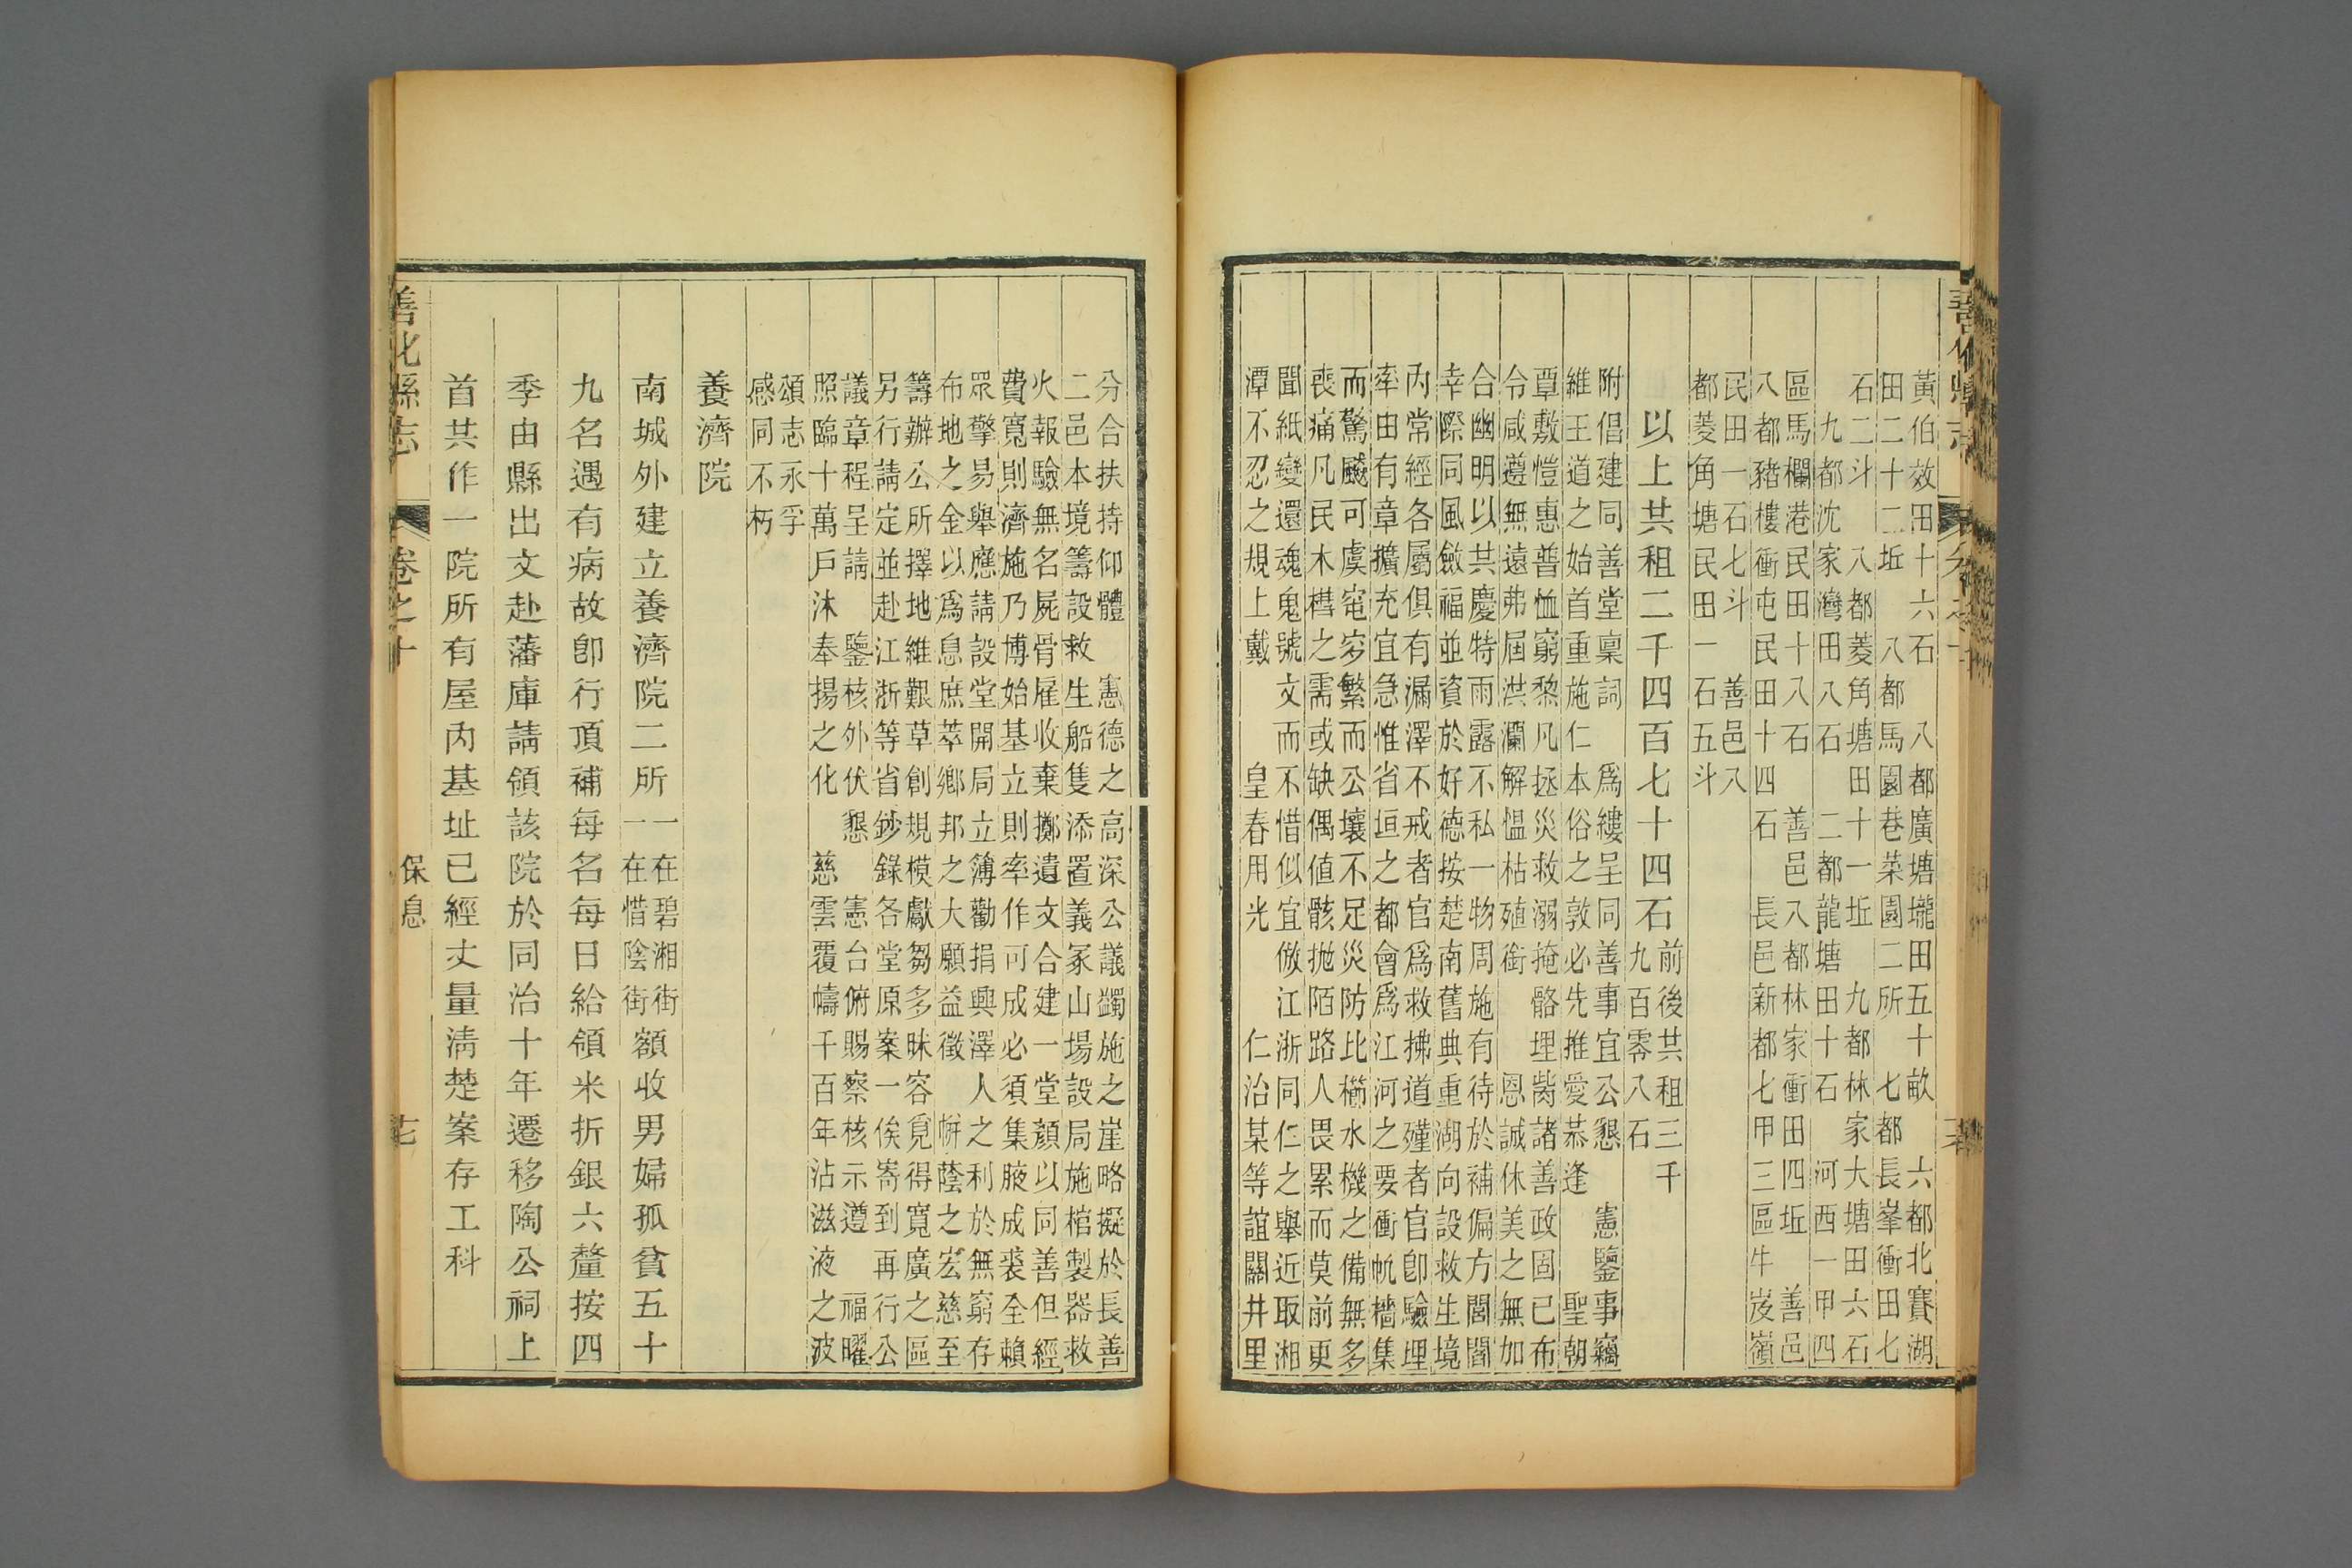 善化縣志
黃伯效田十六石　八都廣塘壠田五十畝　六都北賽湖
田二十二坵　八都馬園巷菜園二所　七都長峯衝田七
石二斗　八都菱角塘田十一坵　九都林家大塘田六石
九都沈家灣田八石　二都龍塘田十石　河西一甲四
區馬欄港民田十八石　善邑八都林家衝田四坵　善邑
八都豬樓衝屯民田十四石　長邑新都七甲三區牛岌嶺
民田一石七斗　善邑八
都菱角塘民田一石五斗
以上共租二千四百七十四石前後共租三千
九百零八石
附倡建同善堂稟詞　爲縷呈同善事宜公懇　憲鑒事竊
維王道之始首重施仁本俗之敦必先推愛恭逢　聖朝
覃敷愷惠普恤窮黎凡拯災救溺掩骼埋胔諸善政固已布
令咸遵無遠弗屆洪瀾解慍枯殖銜　恩誠休美之無加
合幽明以共慶特雨露不私一物周施有待於補偏方閭閻
幸際同風斂福並資於好德按楚南舊典重湖向設救生境
內常經各屬俱有漏澤不戒者官爲救拂道殣者官卽驗埋
率由有章擴充宜急惟省垣之都會爲江河之要衝帆檣集
而驚飈可虞竁穸繁而公壤不足災防比櫛水機之備無多
喪痛凡民木槥之需或缺偶値骸拋陌路人畏累而莫前更
聞紙變還魂鬼號　文而不惜似宜倣江浙同仁之舉近取湘
潭不忍之規上戴　皇春用光　仁治某等誼關井里
分合扶持仰體　憲德之高深公議蠲施之崖略擬於長善
二邑本境籌設救生船隻添置義冢山場設局施棺製器救
火報驗無名屍骨雇收棄擲遺文合建一堂顏以同善但經
費寬則濟施乃博始基立則率作可成必須集腋成裘全賴
眾擎易舉應請設堂開局立簿勸捐興澤　人之利於無窮存
布地之金以爲息庶萃鄉邦之大願益徵　帡蔭之宏慈至
籌辦公所擇地維艱草創規模獻芻多昧容覓得寬廣之區
另行請定並赴江浙等省鈔錄各堂原案一俟寄到再行公
議章程呈請　鑒核外伏懇　憲台俯賜察核示遵　福曜
照臨十萬戶沐奉揚之化　慈雲覆幬千百年沾滋液之波
頌志永孚
感同不朽
養濟院
南城外建立養濟院二所一在碧湘街
一在惜陰街額收男婦孤貧五十
九名遇有病故卽行頂補每名每日給領米折銀六釐按四
季由縣出文赴藩庫請領該院於同治十年遷移陶公祠上
首共作一院所有屋內基址已經丈量淸楚案存工科
善化縣志　卷之十　保息